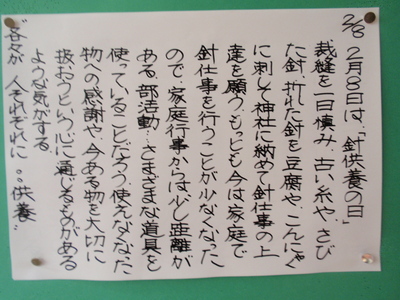 2/8
2月8日は、「針供養の日」
裁縫を一日慎み、古い糸や、さび
た針、折れた針を豆腐や、こんにゃく
に刺して神社に納めて針仕事の上
達を願う。もっとも今は家庭で
針仕事を行うことが少なくなった
ので、家庭行事からは少し距離が
ある。部活動…さまざまな道具を
使っていることだろう。使えなくなった
物への感謝や、今ある物を大切に
扱おうという心に通じるものがある
ような気がする。
各々が、人それぞれに。。供養…